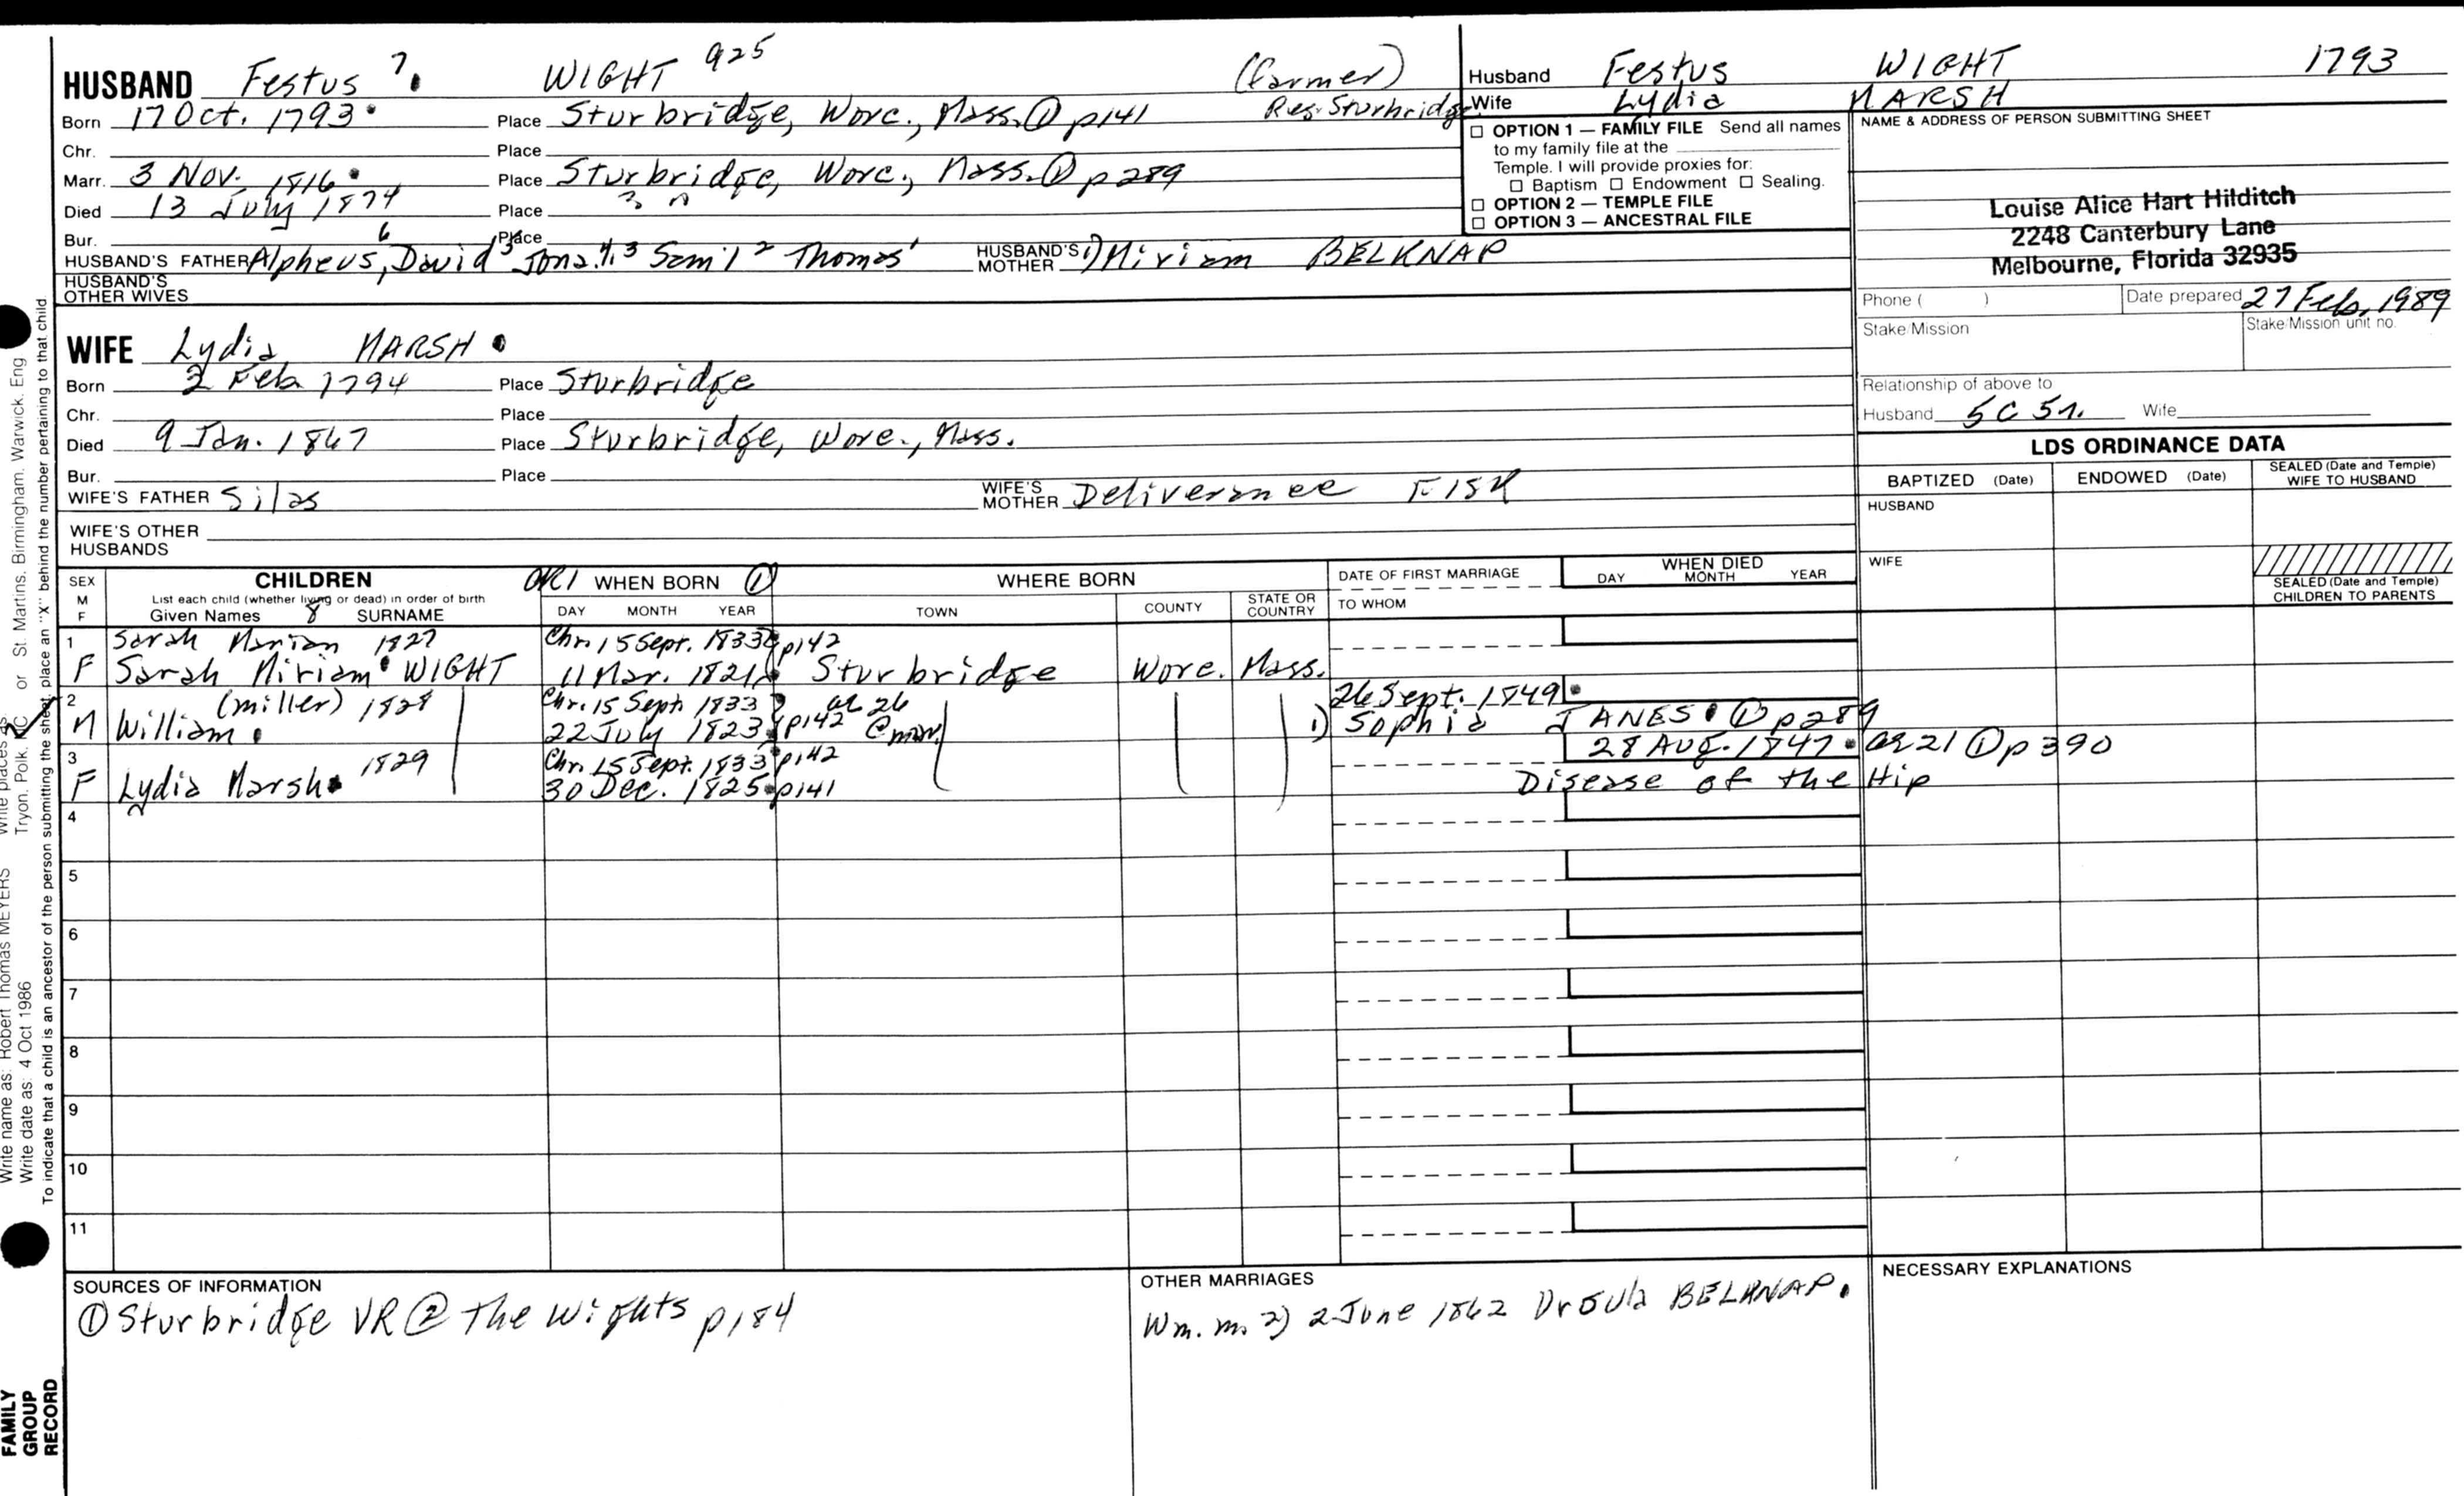 HUSBAND Festus 7 WIGHT 925 (farmer)
Born 17 Oct. 1793 Place Sturbridge, Worc., Mass. ① p141 Res. Sturbridge
Chr. Place
Marr. 3 Nov. 1816 Place Sturbridge, Worc., Mass. ① p289
Died 13 July 1874 Place
Bur. Place
HUSBAND'S FATHER Alpheus 6, David 5 Jona. 4,3 Sam'l 2 Thomas 1 HUSBAND'S MOTHER 1) Miriam BELKNAP
HUSBAND'S OTHER WIVES
WIFE Lydia MARSH
Born 2 Feb 1794 Place Sturbridge
Chr. Place
Died 9 Jan. 1867 Place Sturbridge, Worc., Mass.
Bur. Place
WIFE'S FATHER Silas WIFE'S MOTHER Deliverance FISK
WIFE'S OTHER HUSBANDS
Husband Festus WIGHT 1793
Wife Lydia MARSH
☐ OPTION 1 — FAMILY FILE Send all names
to my family file at the
Temple. I will provide proxies for:
☐ Baptism ☐ Endowment ☐ Sealing.
☐ OPTION 2 — TEMPLE FILE
☐ OPTION 3 — ANCESTRAL FILE
NAME & ADDRESS OF PERSON SUBMITTING SHEET
Louise Alice Hart Hilditch
2248 Canterbury Lane
Melbourne, Florida 32935
Phone ( ) Date prepared 27 Feb, 1989
Stake/Mission Stake/Mission unit no.
Relationship of above to
Husband 5C 5r. Wife
LDS ORDINANCE DATA
BAPTIZED (Date) ENDOWED (Date) SEALED (Date and Temple) WIFE TO HUSBAND
HUSBAND
WIFE
SEALED (Date and Temple) CHILDREN TO PARENTS
SEX M F CHILDREN
List each child (whether living or dead) in order of birth
Given Names 8 SURNAME
WHEN BORN ①
DAY MONTH YEAR
WHERE BORN
TOWN COUNTY STATE OR COUNTRY
DATE OF FIRST MARRIAGE
TO WHOM
WHEN DIED
DAY MONTH YEAR
1 Sarah Marian 1827 Chr. 15 Sept. 1833 p142
F Sarah Miriam WIGHT 11 Mar. 1821 Sturbridge Worc. Mass.
2 (miller) 1828 Chr. 15 Sept 1833 p142 ae 26 @ mar. 26 Sept. 1849
M William 22 July 1823 1) Sophia JANES ① p289
3 1829 Chr. 15 Sept. 1833 p142 28 Aug. 1847 ae 21 ① p390
F Lydia Marsh 30 Dec. 1825 p141 Disease of the Hip
4
5
6
7
8
9
10
11
SOURCES OF INFORMATION
① Sturbridge VR ② The Wights p184
OTHER MARRIAGES
Wm. m. 2) 2 June 1862 Ursula BELKNAP.
NECESSARY EXPLANATIONS
or St. Martins, Birmingham, Warwick, Eng
Tryon, Polk, NC
Write name as: Robert Thomas MEYERS
Write date as: 4 Oct 1986
To indicate that a child is an ancestor of the person submitting the sheet, place an "X" behind the number pertaining to that child
FAMILY
GROUP
RECORD